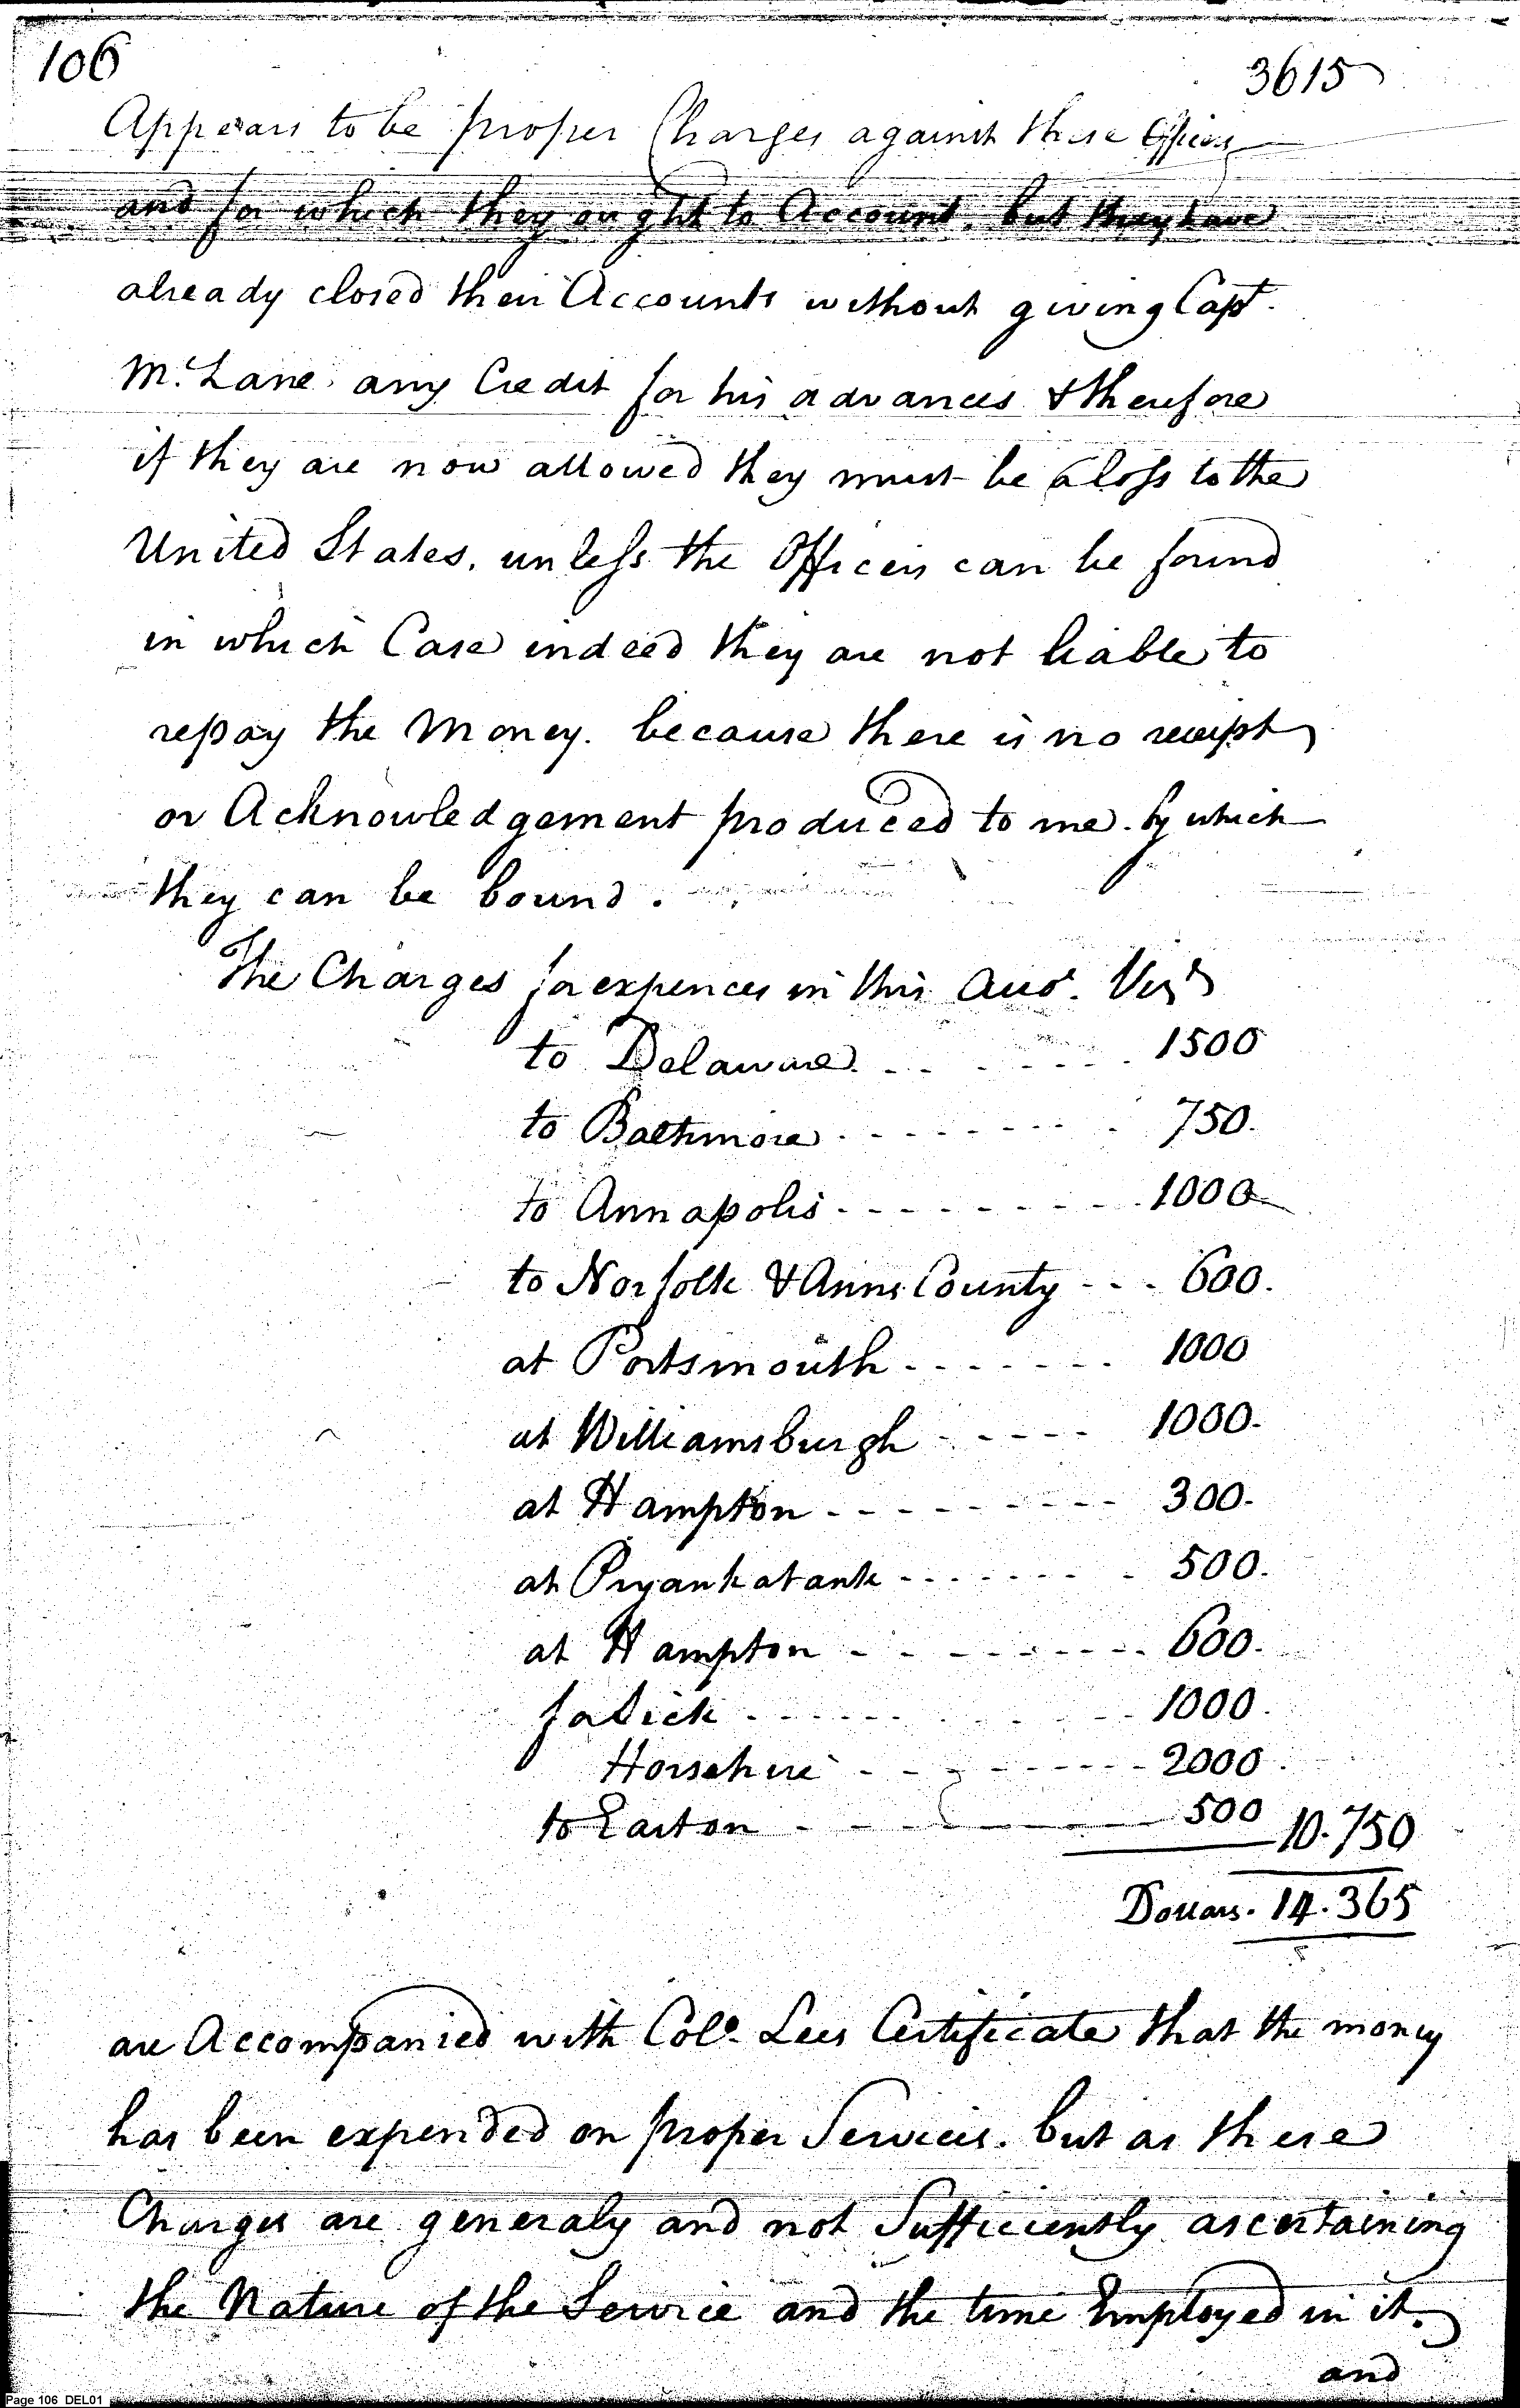 106
3615
Appears to be proper Charges against these Officers
and for which they ought to Account. but they have
already closed their Accounts without giving Capt.
Mc. Lane any Credit for his advances & therefore
if they are now allowed they must be a loss to the
United States, unless the Officers can be found
in which Case indeed they are not liable to
repay the Money. because there is no receipt
or Acknowledgement produced to me. by which
they can be bound.
The Charges for expences in this Acco.t Viz.t
to Delaware 1500
to Baltimore 750.
to Annapolis 1000
to Norfolk & Anns County 600.
at Portsmouth 1000
at Williamsburgh 1000.
at Hampton 300.
at Pyankatank 500.
at Hampton 600.
for Sick 1000.
Horsehire 2000.
to Easton 500 10.750
Dollars. 14.365
are Accompanied with Colo. Lees Certificate that the money
has been expended on proper Services. but as these
Charges are generaly and not Sufficiently ascertaining
the Nature of the Service and the time Employed in it.
and
Page 106 DEL01